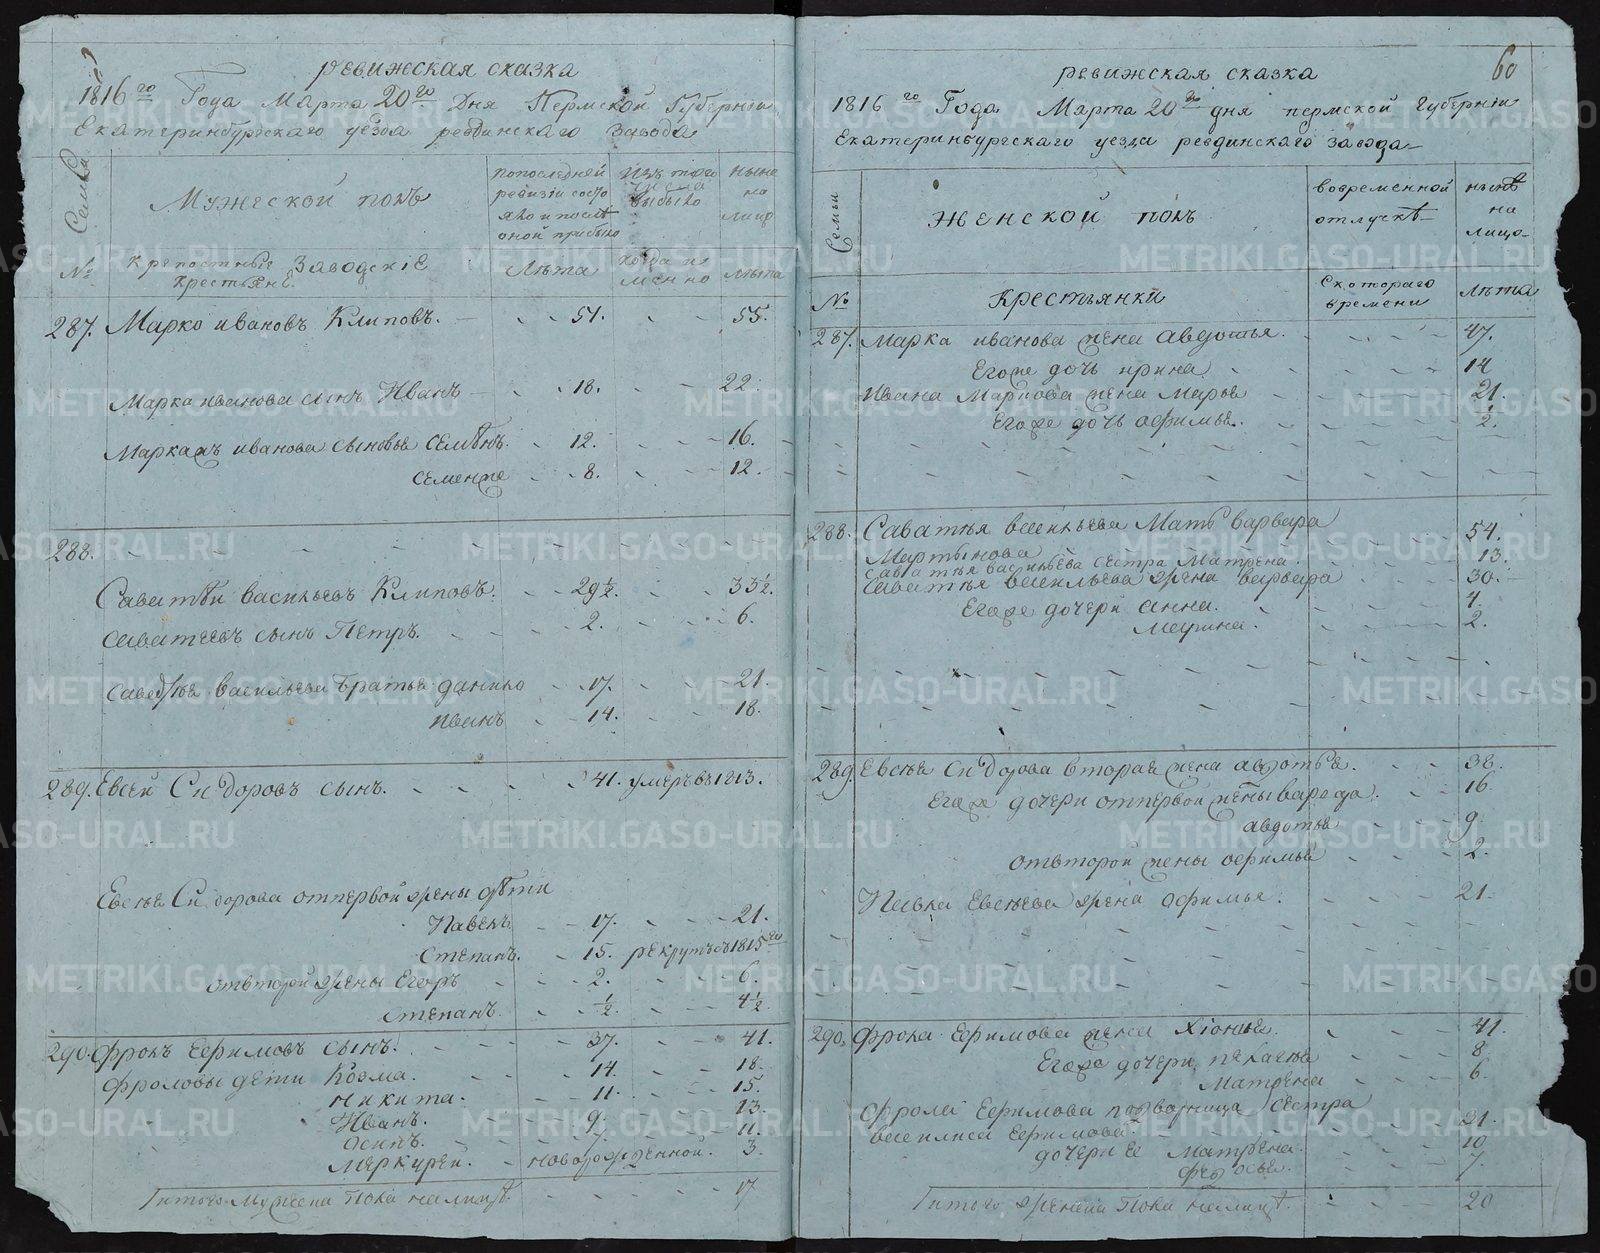 ревижская сказка
1816го Года Марта 20го Дня Пермской Губернии
Екатеринбургскаго уезда ревдинскаго завода
Семьи
Мужеской полъ
попоследней ревизіи состояло и после оной прибыло
Изъ того числа выбыло
ныне на лицо
№
крепостные Заводскіе крестьяне
Лѣта
когда именно
лѣта
287. Марко ивановъ Клиповъ. 51. 55.
Марка иванова сынъ Иванъ 18. 22.
Маркажъ иванова сыновья Семѣнъ. 12. 16.
Сементе 8. 12.
288.
Саватѣи васильевъ Клиповъ. 29½. 33½.
саватеевъ сынъ Петръ. 2. 6.
васильева братья данило 17. 21.
иванъ 14. 18.
289. Евсей Сидоровъ сынъ. 41. умеръ въ 1813.
Евсея Сидорова отпервой жены дѣти
Павелъ 17. 21.
Степанъ. 15. рекрутъ въ 1815го
отвторой жены Егоръ 2. 6.
Степанъ. ½ 4½
290. Фролъ Ефимовъ сынъ. 37. 41.
Фроловы дети Козма. 14. 18.
Никита. 11. 15.
Иванъ. 9. 13.
осипъ. 11.
Меркурей. новорожденной. 3.
Итого мужеска пола налицѣ. 17
60
ревижская сказка
1816го Года Марта 20го дня пермской Губерніи
Екатеринбургскаго уезда ревдинскаго завода
Семьи
Женской полъ
вовременной отлучкѣ
нынѣ на лицо
№
Крестьянки
Скотораго времени
лѣта
287. Марка иванова жена авдотья. 47.
Егоже дочь ирина 14
Ивана Маркова жена Марья 21.
Егоже дочь афимья. ½.
288. Саватья васильева Мать варвара
Мартынова 54.
саватья васильева сестра Матрена. 13.
Саватья васильева жена варвара 30.
Егоже дочери анна. 4.
Марина. 2.
289. Евсея Сидорова вторая жена авдотья. 38.
Егоже дочери отпервой жены варвара. 16.
авдотья 9.
отвторой жены афимья 2.
Павла Евсеева жена афимья. 21.
290. Фрола Ефимова жена Хіонья. 41.
Егоже дочери пелагея 8.
Матрена 6.
Фрола Ефимова сестра
василиса Ефимова. 31.
дочери ее Матрена. 10
федосья. 7.
Итого женска пола налицѣ. 20
METRIKI.GASO-URAL.RU